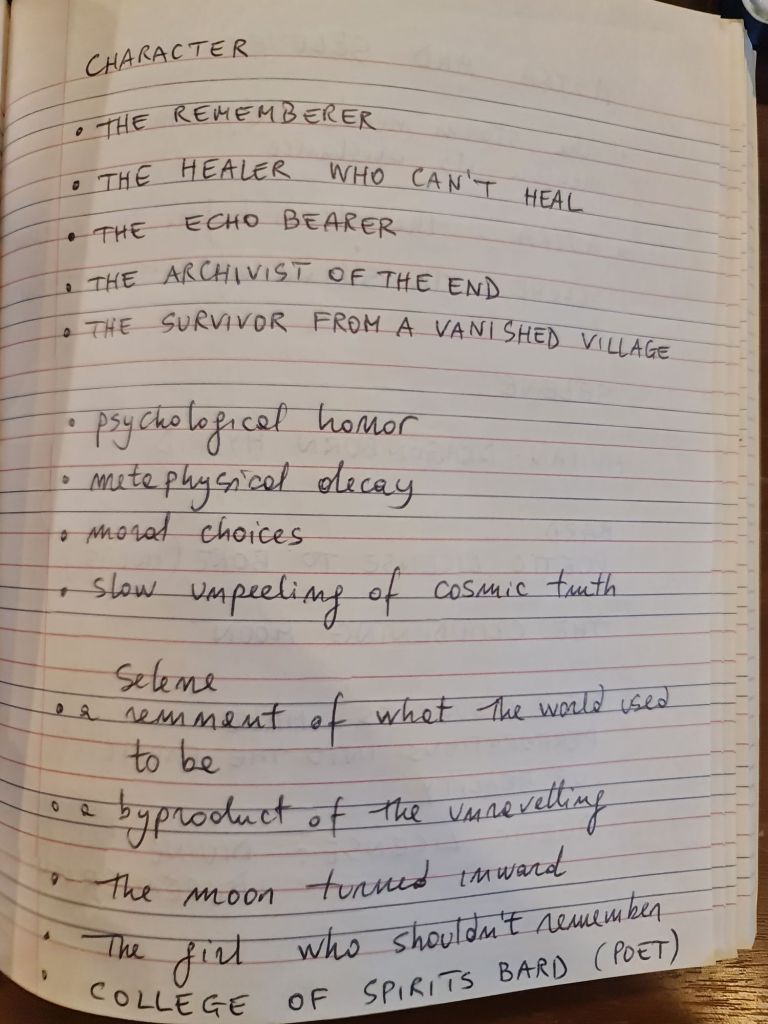 CHARACTER
• THE REMEMBERER
• THE HEALER WHO CAN'T HEAL
• THE ECHO BEARER
• THE ARCHIVIST OF THE END
• THE SURVIVOR FROM A VANISHED VILLAGE
• psychological horror
• metaphysical decay
• moral choices
• slow unpeeling of cosmic truth
Selene
• a remnent of what the world used
to be
• a byproduct of the unravelling
• the moon turned inward
• The girl who shouldn't remember
• COLLEGE OF SPIRITS BARD (POET)